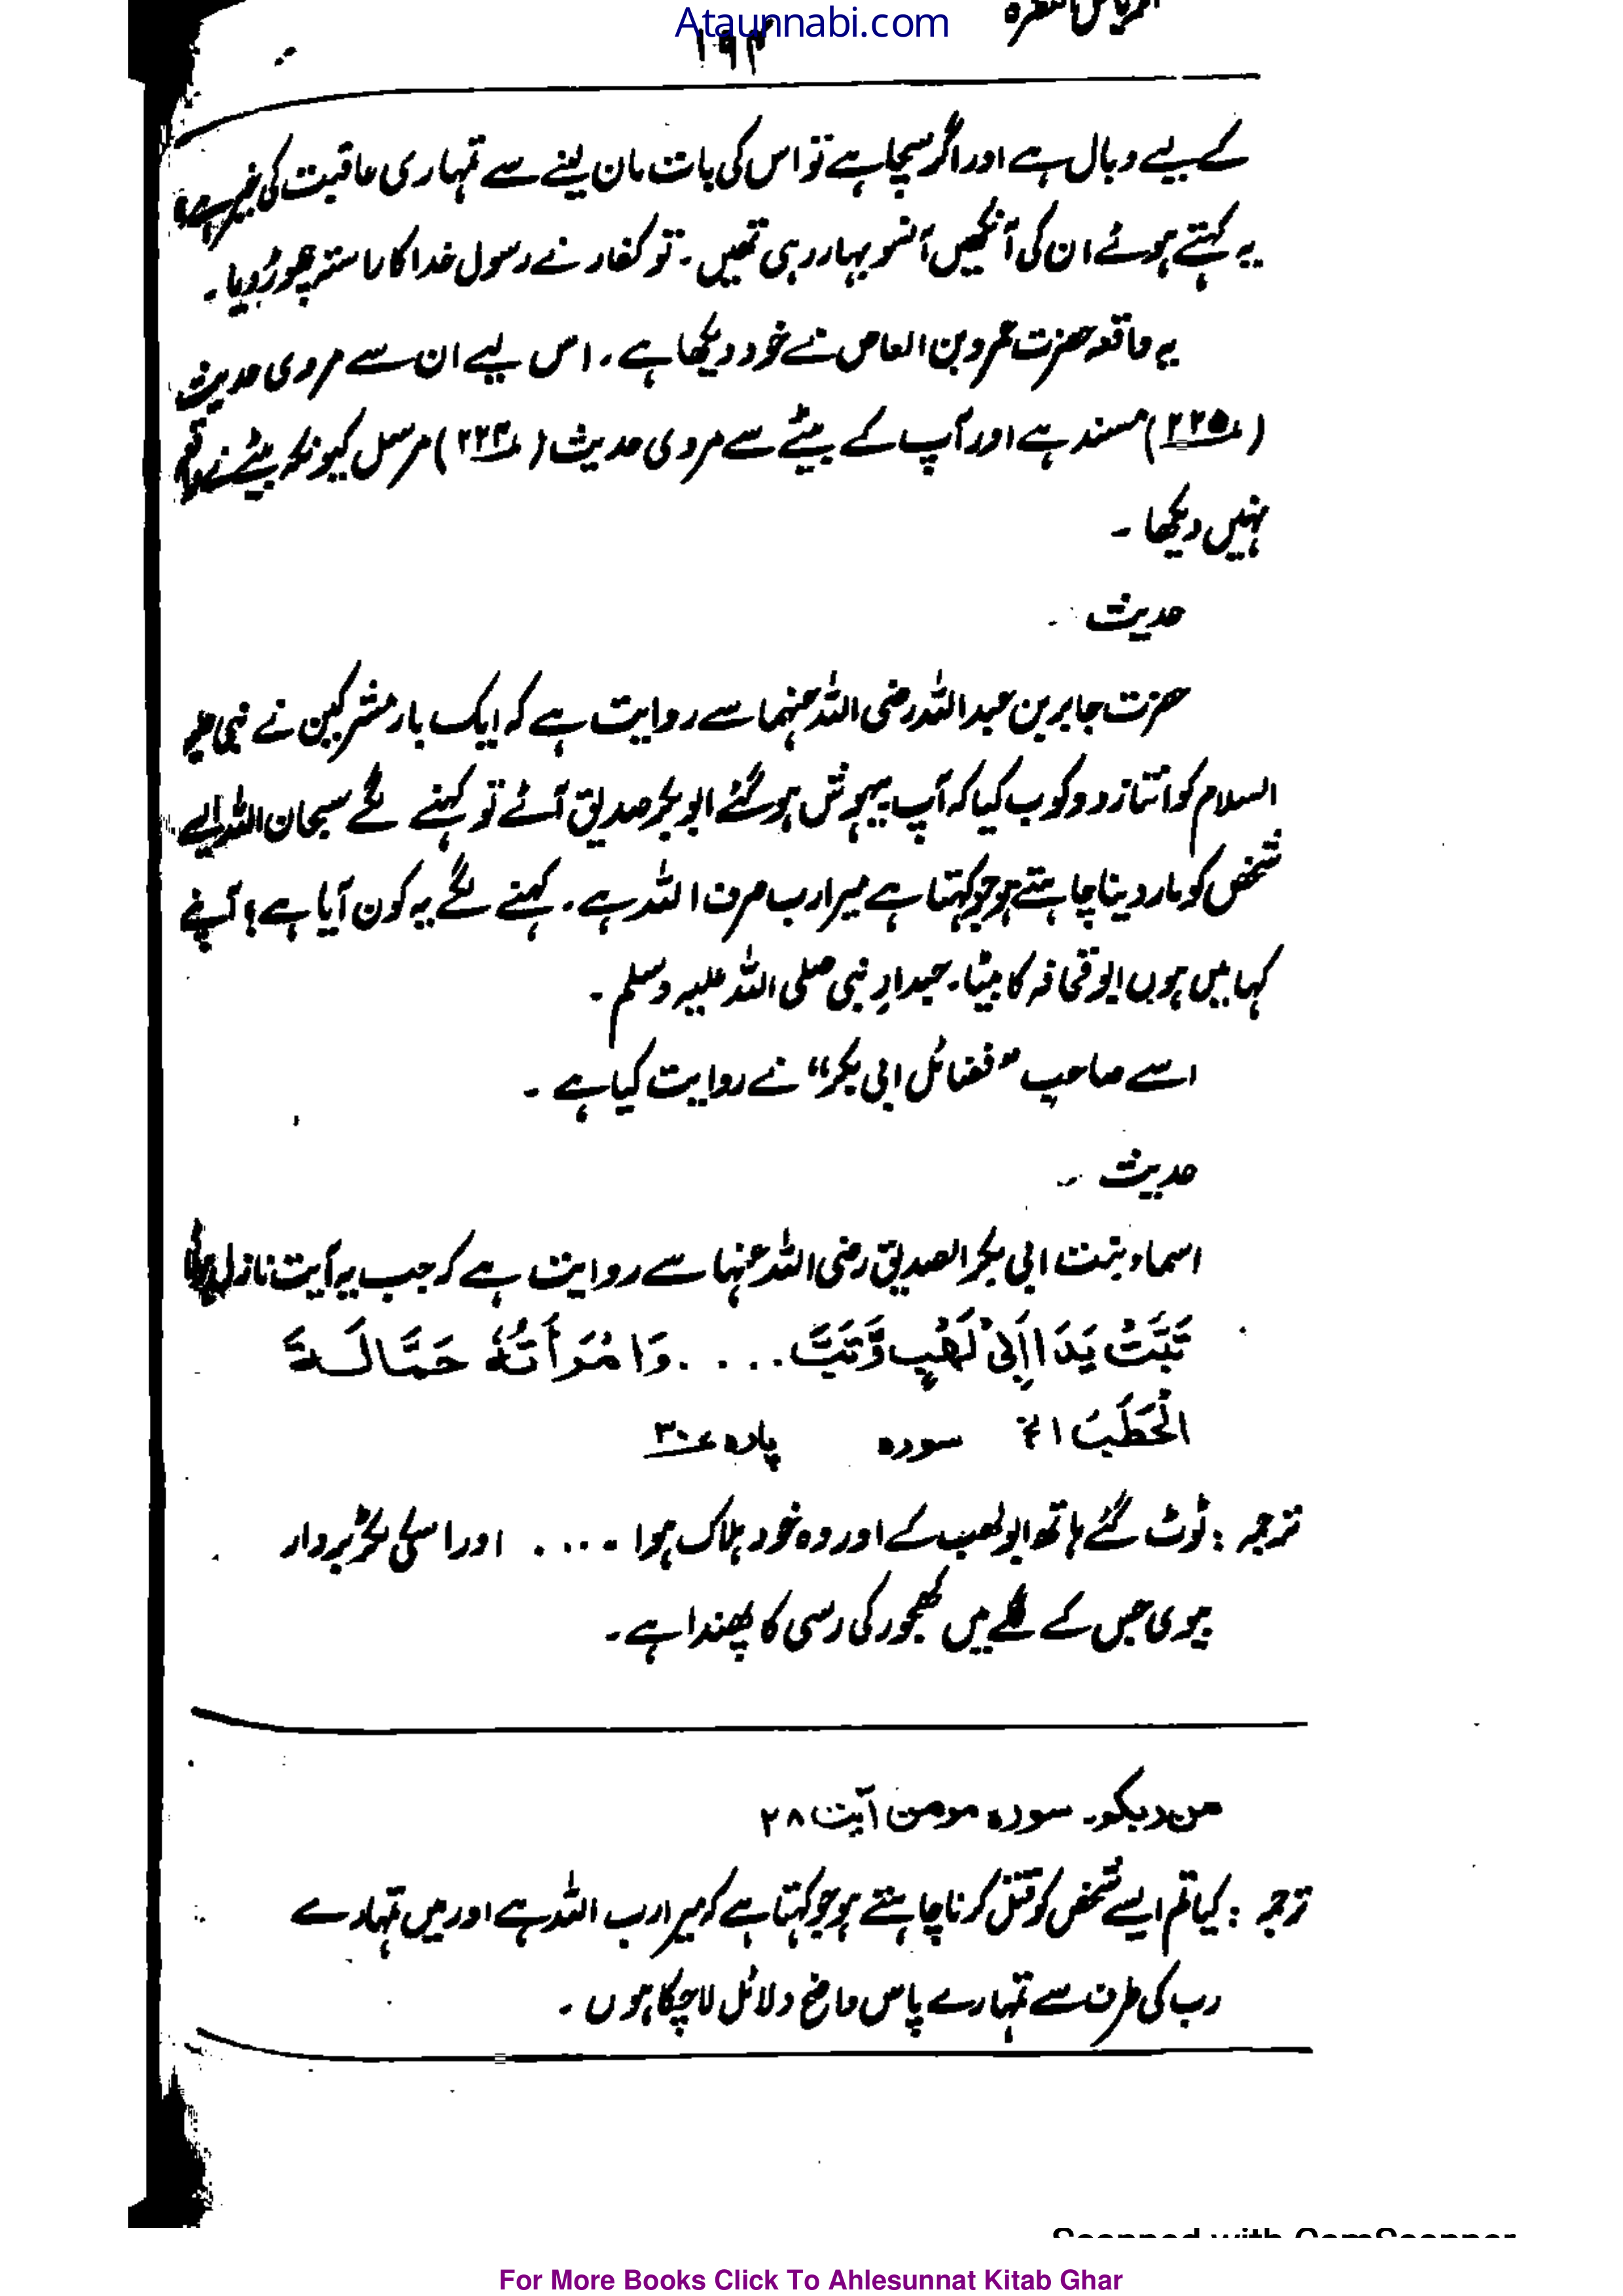 Ataunnabi.com
۱۹۴
کے لیے وبال ہے اور اگر سچا ہے تو اس کی بات مان لینے سے تمہاری عاقبت کی خیر ہے۔
یہ کہتے ہوئے ان کی آنکھیں آنسو بہا رہی تھیں۔ تو کفار نے رسول خدا کا راستہ چھوڑ دیا۔
یہ واقعہ حضرت عمرو بن العاص نے خود دیکھا ہے۔ اس لیے ان سے مروی حدیث
(۲۲۵) مسند ہے اور آپ کے بیٹے سے مروی حدیث (۲۲۴) مرسل کیونکہ بیٹے نے واقعہ
نہیں دیکھا۔
حدیث ۔
حضرت جابر بن عبداللہ رضی اللہ عنہما سے روایت ہے کہ ایک بار مشرکین نے نبی علیہ
السلام کو اتنا زدوکوب کیا کہ آپ بیہوش ہو گئے ابوبکر صدیق آئے تو کہنے لگے سبحان اللہ ایسے
شخص کو مار دینا چاہتے ہو جو کہتا ہے میرا رب صرف اللہ ہے۔ کہنے لگے یہ کون آیا ہے؟ آپ نے
کہا میں ہوں ابو قحافہ کا بیٹا۔ حبدارِ نبی صلی اللہ علیہ وسلم۔
اسے صاحب ”فضائل ابی بکر“ نے روایت کیا ہے ۔
حدیث ۔
اسماء بنت ابی بکر الصدیق رضی اللہ عنہا سے روایت ہے کہ جب یہ آیت نازل ہوئی
تَبَّتْ يَدَا اَبِیْ لَهَبٍ وَّتَبَّ .... وَامْرَأَتُهٗ حَمَّالَةَ
الْحَطَبِ الخ سورہ پارہ ۳۰
ترجمہ : ٹوٹ گئے ہاتھ ابولہب کے اور وہ خود ہلاک ہوا .... اور اسکی لکڑ بردار
بیوی جس کے گلے میں کھجور کی رسی کا پھندا ہے۔
من ربکم۔ سورہ مومن آیت ۲۸
ترجمہ : کیا تم ایسے شخص کو قتل کرنا چاہتے ہو جو کہتا ہے کہ میرا رب اللہ ہے اور میں تمہارے
رب کی طرف سے تمہارے پاس واضح دلائل لا چکا ہوں ۔
Scanned with CamScanner
For More Books Click To Ahlesunnat Kitab Ghar